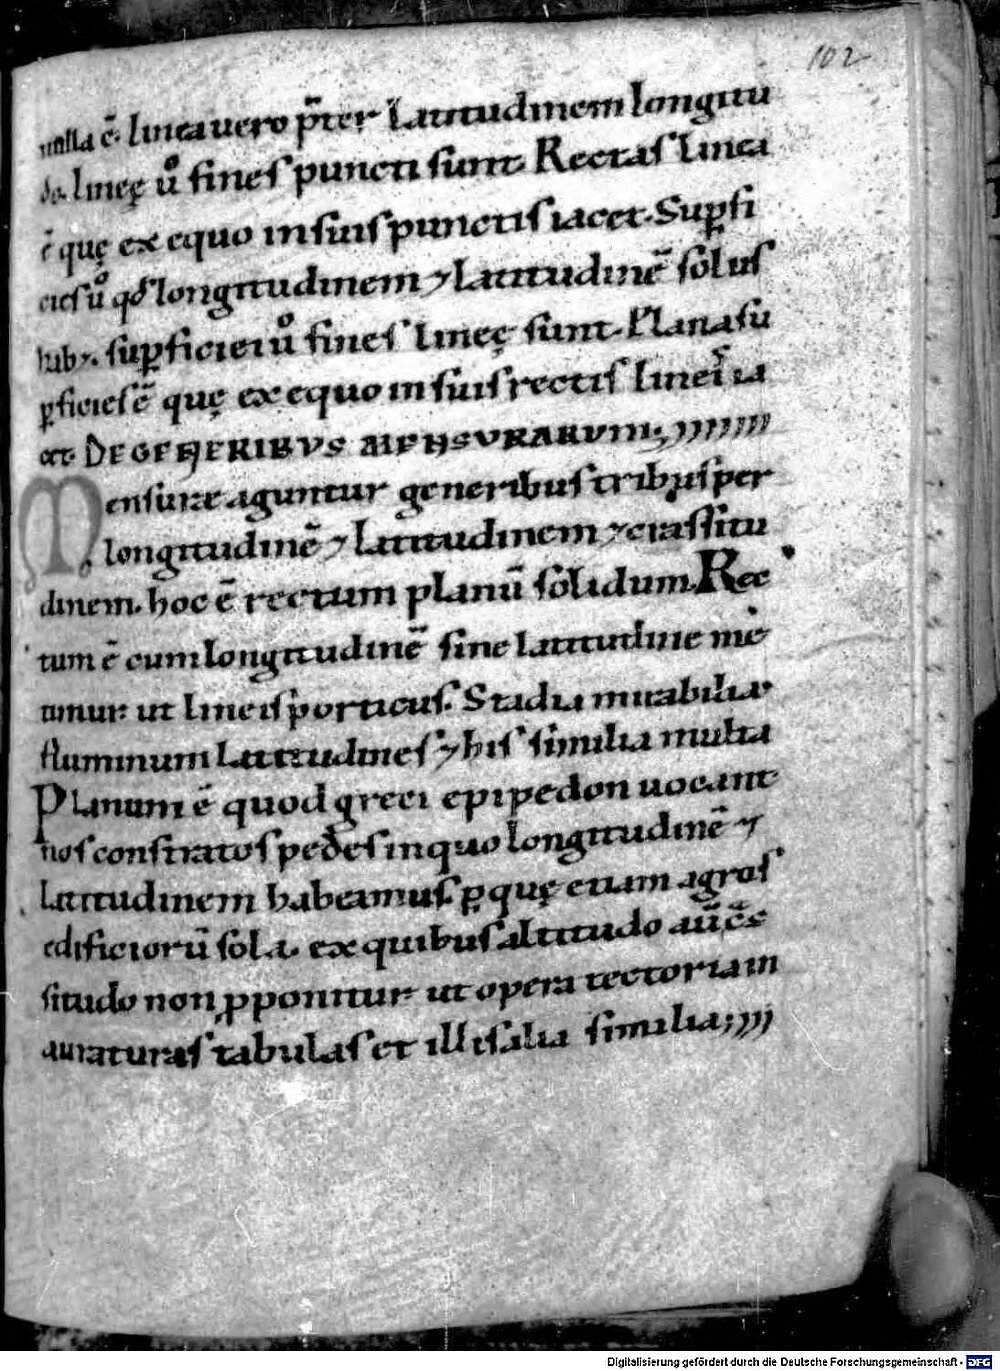 102
nulla ē. linea uero p̄ter latitudinem longitu
do. lineę ů fines puncti sunt. Rectas linea
ē quę ex equo in suis punctis iacet. Sup̱fi
cies ů qđ longitudinem ⁊ latitudinē solus
sup̱ficiei ů fines lineę sunt. Plana su
p̱ficies ē quę ex equo in suis rectis lineis ia
cet. DE GENERIBVS MENSVRARVM;
Mensurae aguntur generibus tribus per
longitudinē ⁊ latitudinem ⁊ crassitu
dinem. hoc ē rectum planū solidum. Rec
tum ē cum longitudinē sine latitudine me
timur ut lineis porticus. Stadia mirabilia
fluminum latitudines ⁊ his similia multa
Planum ē quod greci epipedon uocant
nos constratos pedes in quo longitudinē ⁊
latitudinem habeamus. p̱ quę etiam agros
edificiorū sola. ex quibus altitudo
situdo non p̱ponitur ut opera tectoria in
auraturas tabulas et illis alia similia;
Digitalisierung gefördert durch die Deutsche Forschungsgemeinschaft - DFG